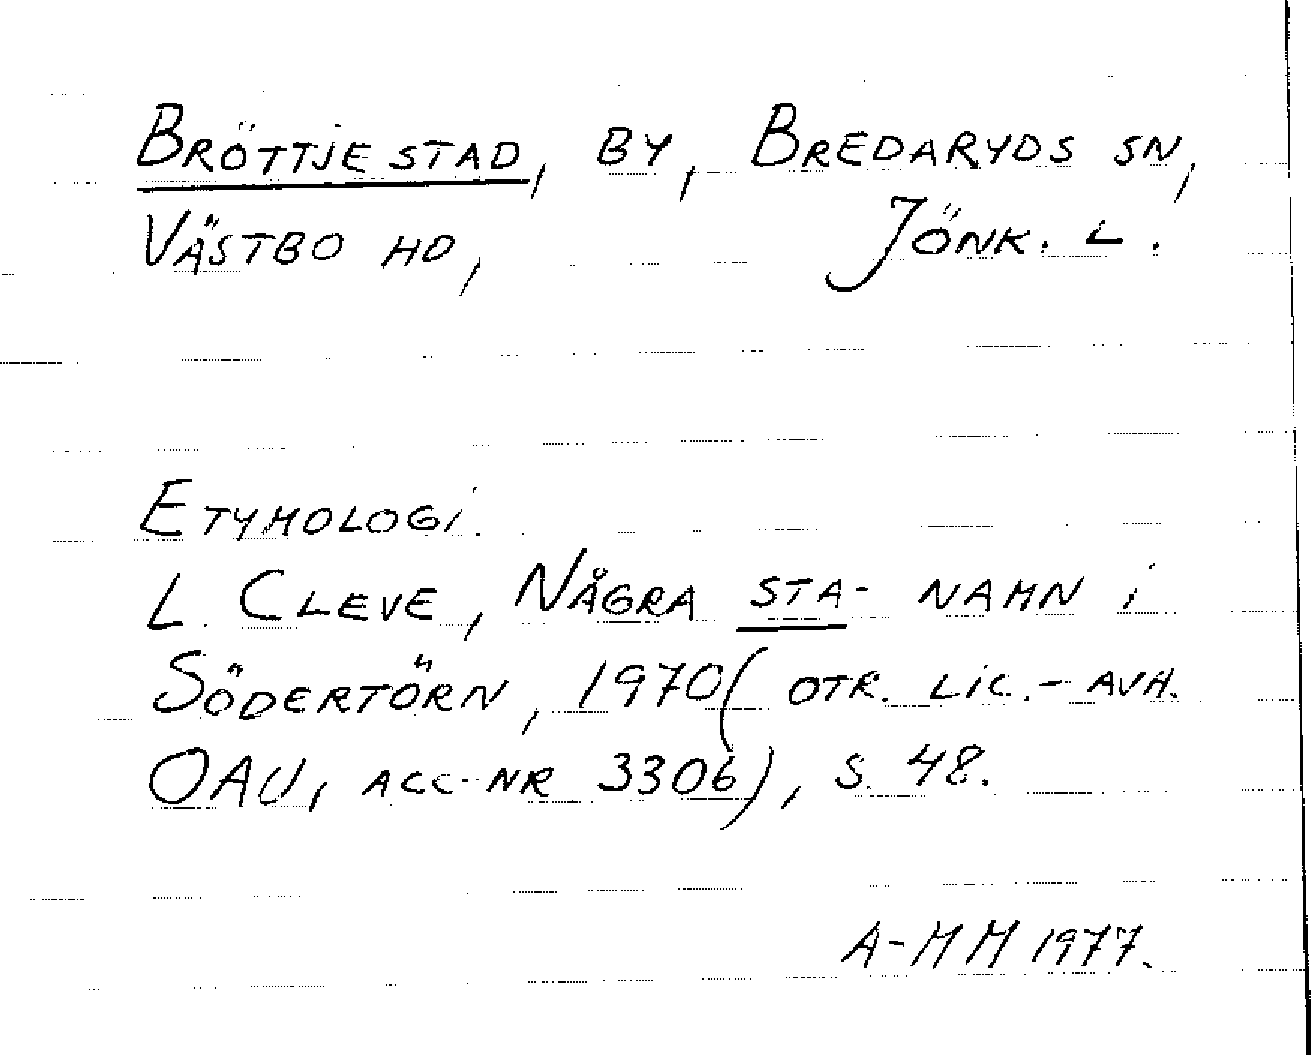 BRÖTTJESTAD, BY, BREDARYDS SN,
VÄSTBO HD, JÖNK. L.
ETYMOLOGI.
L. CLEVE, NÅGRA STA- NAMN i
SÖDERTÖRN, 1970 (OTR. LIC.-AVH.
OAU, ACC-NR 3306), S. 48.
A-MM 1977.